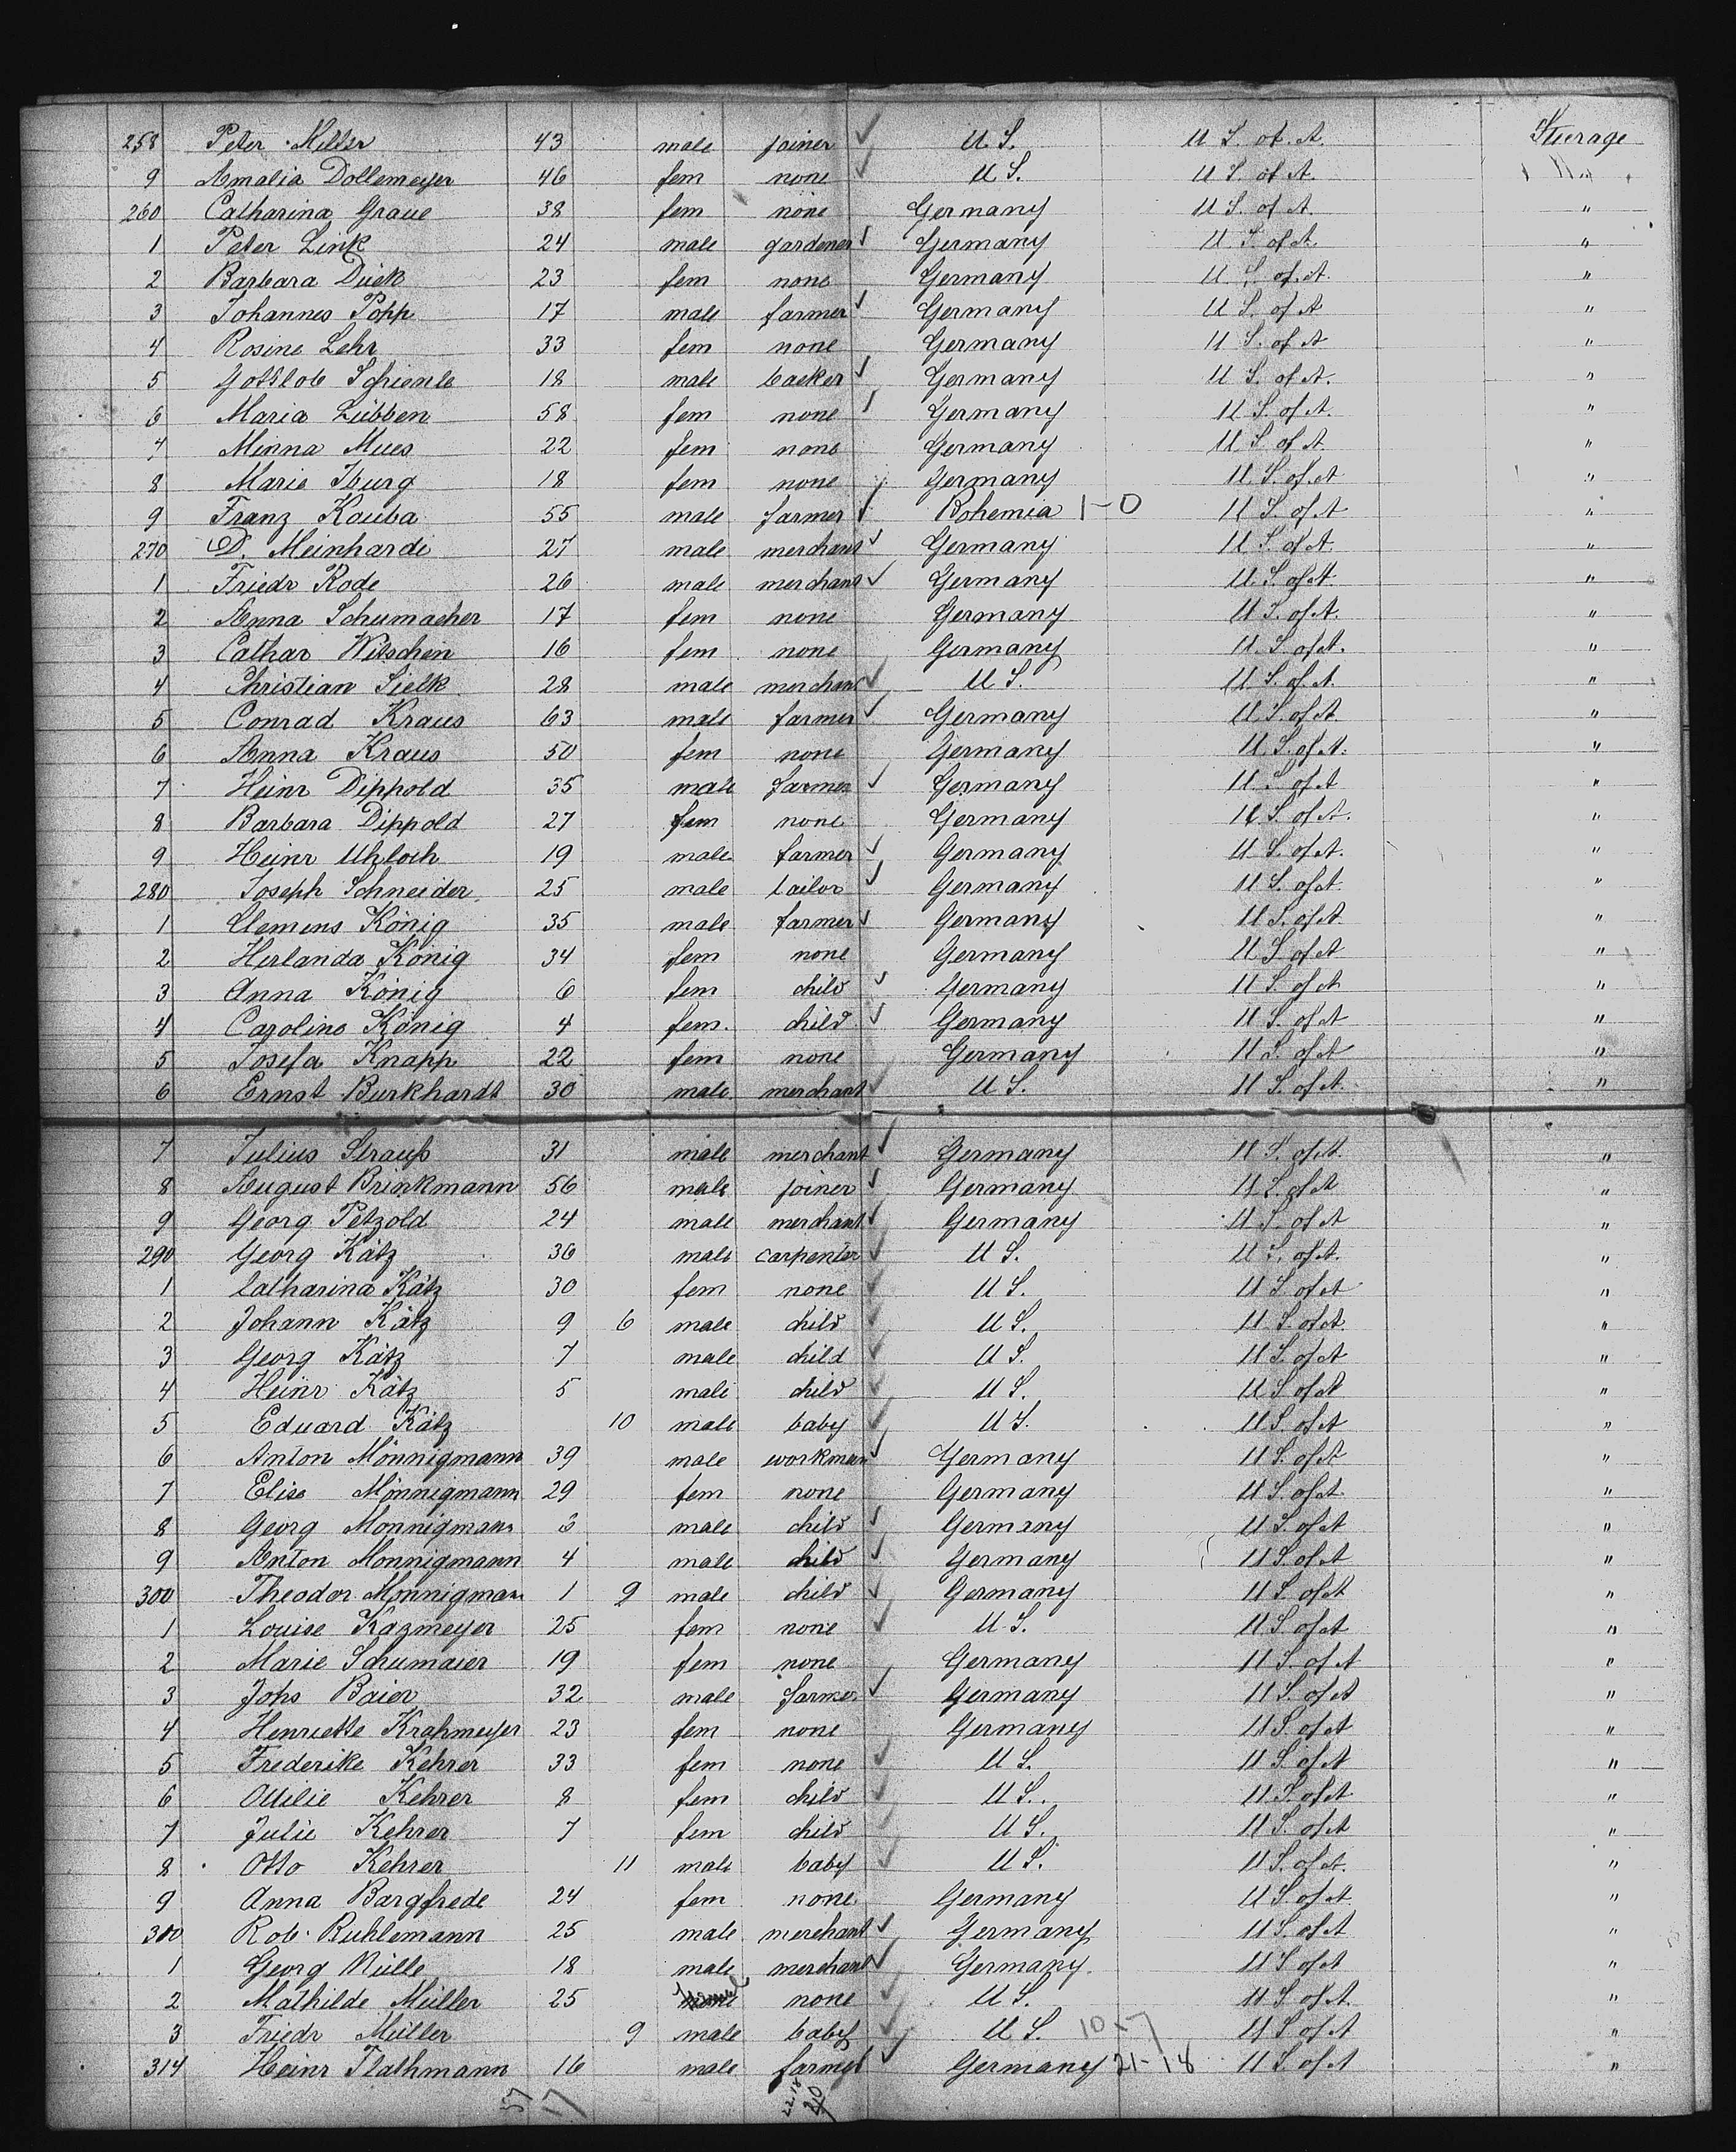 258 Peter Miller 43 male joiner ✓ U S. U S. of A. Steerage
9 Amalia Dollemeyer 46 fem none ✓ U S. U S of A.
260 Catharina Graue 38 fem none Germany U S. of A. "
1 Peter Link 24 male gardener ✓ Germany U S. of A. "
2 Barbara Dück 23 fem none Germany U S. of A. "
3 Johannes Popp 17 male farmer ✓ Germany U S. of A "
4 Rosine Lehr 33 fem none Germany U S. of A "
5 Gottlob 18 male backer ✓ Germany U S. of A. "
6 Maria Lübben 58 fem none ✓ Germany U S. of A. "
7 Minna Mues 22 fem none Germany U S. of A. "
8 Marie Iburg 18 fem none Germany U S. of A "
9 Franz Kouba 55 male farmer ✓ Bohemia 1-0 U S. of A "
270 D. Meinhardi 27 male merchant ✓ Germany U S. of A. "
1 Friedr Rode 26 male merchant ✓ Germany U. S. of A. "
2 Anna Schumacher 17 fem none Germany U S. of A. "
3 Cathar Witschen 16 fem none Germany U S. of A. "
4 Christian Sielk 28 male merchant ✓ U S. U. S. of A. "
5 Conrad Kraus 63 male farmer ✓ Germany U. S. of A "
6 Anna Kraus 50 fem none Germany U. S. of A. "
7 Heinr Dippold 35 male farmer ✓ Germany U. S of A "
8 Barbara Dippold 27 fem none Germany U S. of A. "
9 Heinr Uhloch 19 male farmer ✓ Germany U S. of A. "
280 Joseph Schneider 25 male tailor ✓ Germany U S. of A "
1 Clemens König 35 male farmer ✓ Germany U S. of A "
2 Herlanda König 34 fem none Germany U S of A "
3 Anna König 6 fem child ✓ Germany U S. of A "
4 Caroline König 4 fem. child ✓ Germany U S. of A "
5 Josefa Knapp 22 fem none Germany U S. of A "
6 Ernst Burkhardt 30 male merchant ✓ U S. U S. of A "
7 Julius Strauß 31 male merchant ✓ Germany U S. of A "
8 August Brinkmann 56 male joiner ✓ Germany U S. of A "
9 Georg Petzold 24 male merchant ✓ Germany U S. of A "
290 Georg Kätz 36 male carpenter ✓ U S. U S. of A. "
1 Catharina Kätz 30 fem none ✓ U S. U S of A "
2 Johann Kätz 9 6 male child ✓ U S. U S. of A "
3 Georg Kätz 7 male child ✓ U S. U S. of A "
4 Heinr Kätz 5 male child ✓ U S. U S of A "
5 Eduard Kätz 10 male baby ✓ U S. U S of A "
6 Anton Mönnigmann 39 male workman ✓ Germany U S. of A "
7 Elise Mönnigmann 29 fem none Germany U S. of A "
8 Georg Monnigmann male child ✓ Germany U S. of A "
9 Anton Monnigmann 4 male child ✓ Germany U S. of A "
300 Theodor Mönnigman 1 9 male child ✓ Germany U S. of A "
1 Louise Kazmeyer 25 fem none ✓ U S. U S of A "
2 Marie Schumaier 19 fem none Germany U S. of A "
3 Johs Baier 32 male farmer ✓ Germany U S. of A "
4 Henriette Krahmeyer 23 fem none Germany U S. of A "
5 Frederike Kehrer 33 fem none ✓ U S. U S. of A "
6 Ottilie Kehrer 8 fem child ✓ U S. U S. of A "
7 Julie Kehrer 7 fem child ✓ U S. U S. of A "
8 Otto Kehrer 11 male baby ✓ U S. U S. of A. "
9 Anna Bargfrede 24 fem none Germany U S. of A "
310 Rob. Ruhlemann 25 male merchant ✓ Germany U S. of A "
1 Georg Nülle 18 male merchant ✓ Germany U S of A "
2 Mathilde Müller 25 none ✓ U S. U S of A. "
3 Friedr Müller 9 male baby ✓ U S. 10-7 U S of A "
314 Heinr Flathmann 16 male farmer ✓ Germany 21-18 U S. of A "
57 17 22.18 40